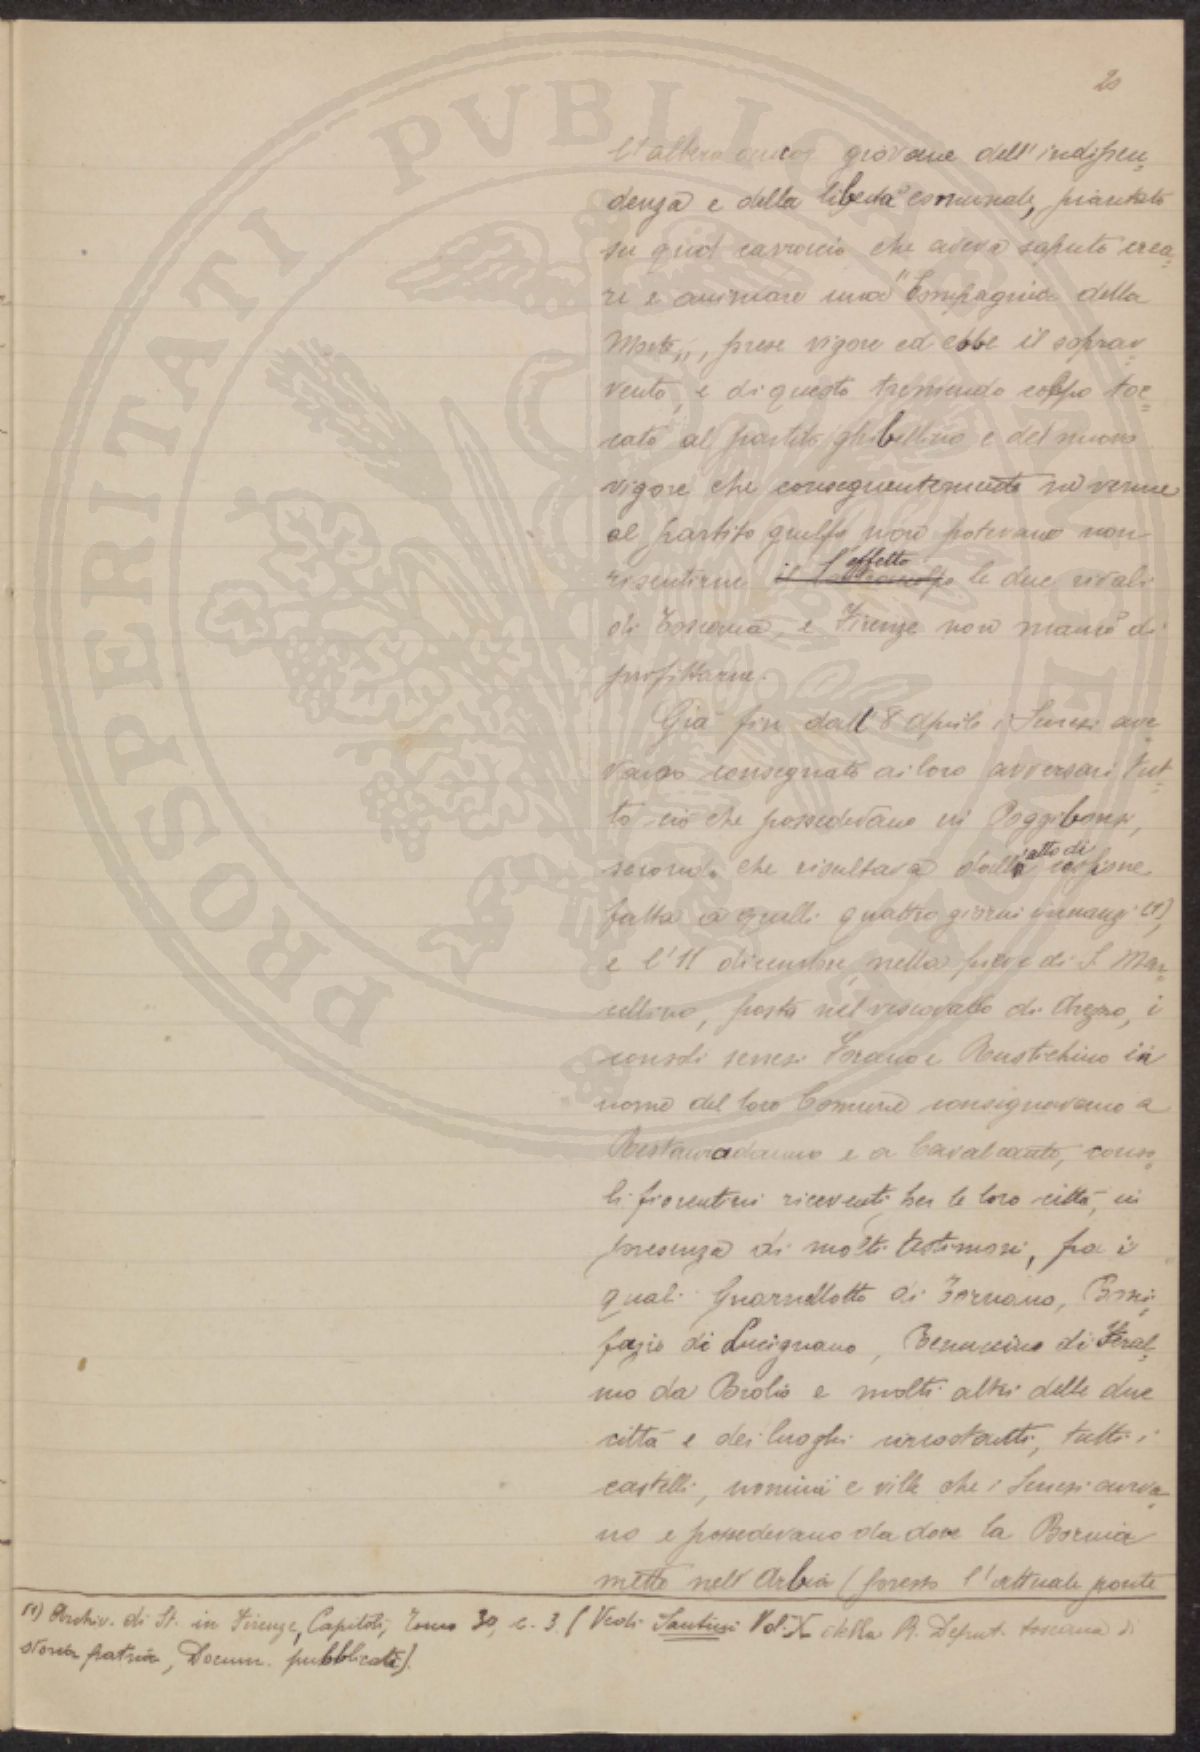 20
L'albero ancor giovane dell'indipen-
denza e della libertà comunale, piantato
su quel carroccio che aveva saputo crea-
re e animare una "Compagnia della
Morte„, prese vigore ed ebbe il soprav-
vento, e di questo tremendo colpo toc-
cato al partito ghibellino e del nuovo
vigore che conseguentemente ne venne
al partito guelfo non potevano non
risentirne l'effetto le due rivali
di Toscana, e Firenze non mancò di
profittarne.
Già fin dall'8 Aprile i Senesi ave-
vano consegnato ai loro avversari tut-
to ciò che possedevano in Poggibonsi,
secondo che risultava dall'atto di cessione
fatta a quelli quattro giorni innanzi (1),
e l'11 dicembre, nella pieve di S. Mar-
cellino, posta nel vescovado di Arezzo, i
consoli senesi Forano e Rustichino in
nome del loro Comune consignavano a
Restauradanno e a Cavalcante, conso-
li fiorentini riceventi per la loro città, in
presenza di molti testimoni, fra i
quali Guarnellotto di Tornano, Boni-
fazio di Lucignano, Benuccino di Feral-
mo da Brolio e molti altri delle due
città e dei luoghi circostanti, tutti i
castelli, uomini e ville che i Senesi aveva-
no e possedevano da dove la Bornia
mette nell'Arbia (presso l'attuale ponte
(1) Archiv. di St. in Firenze, Capitoli, Tomo 30, c. 3. (Vedi Santini Vol. X della R. Deput. toscana di
storia patria, Docum. pubblicati).
PROSPERITATI PVBLICAE